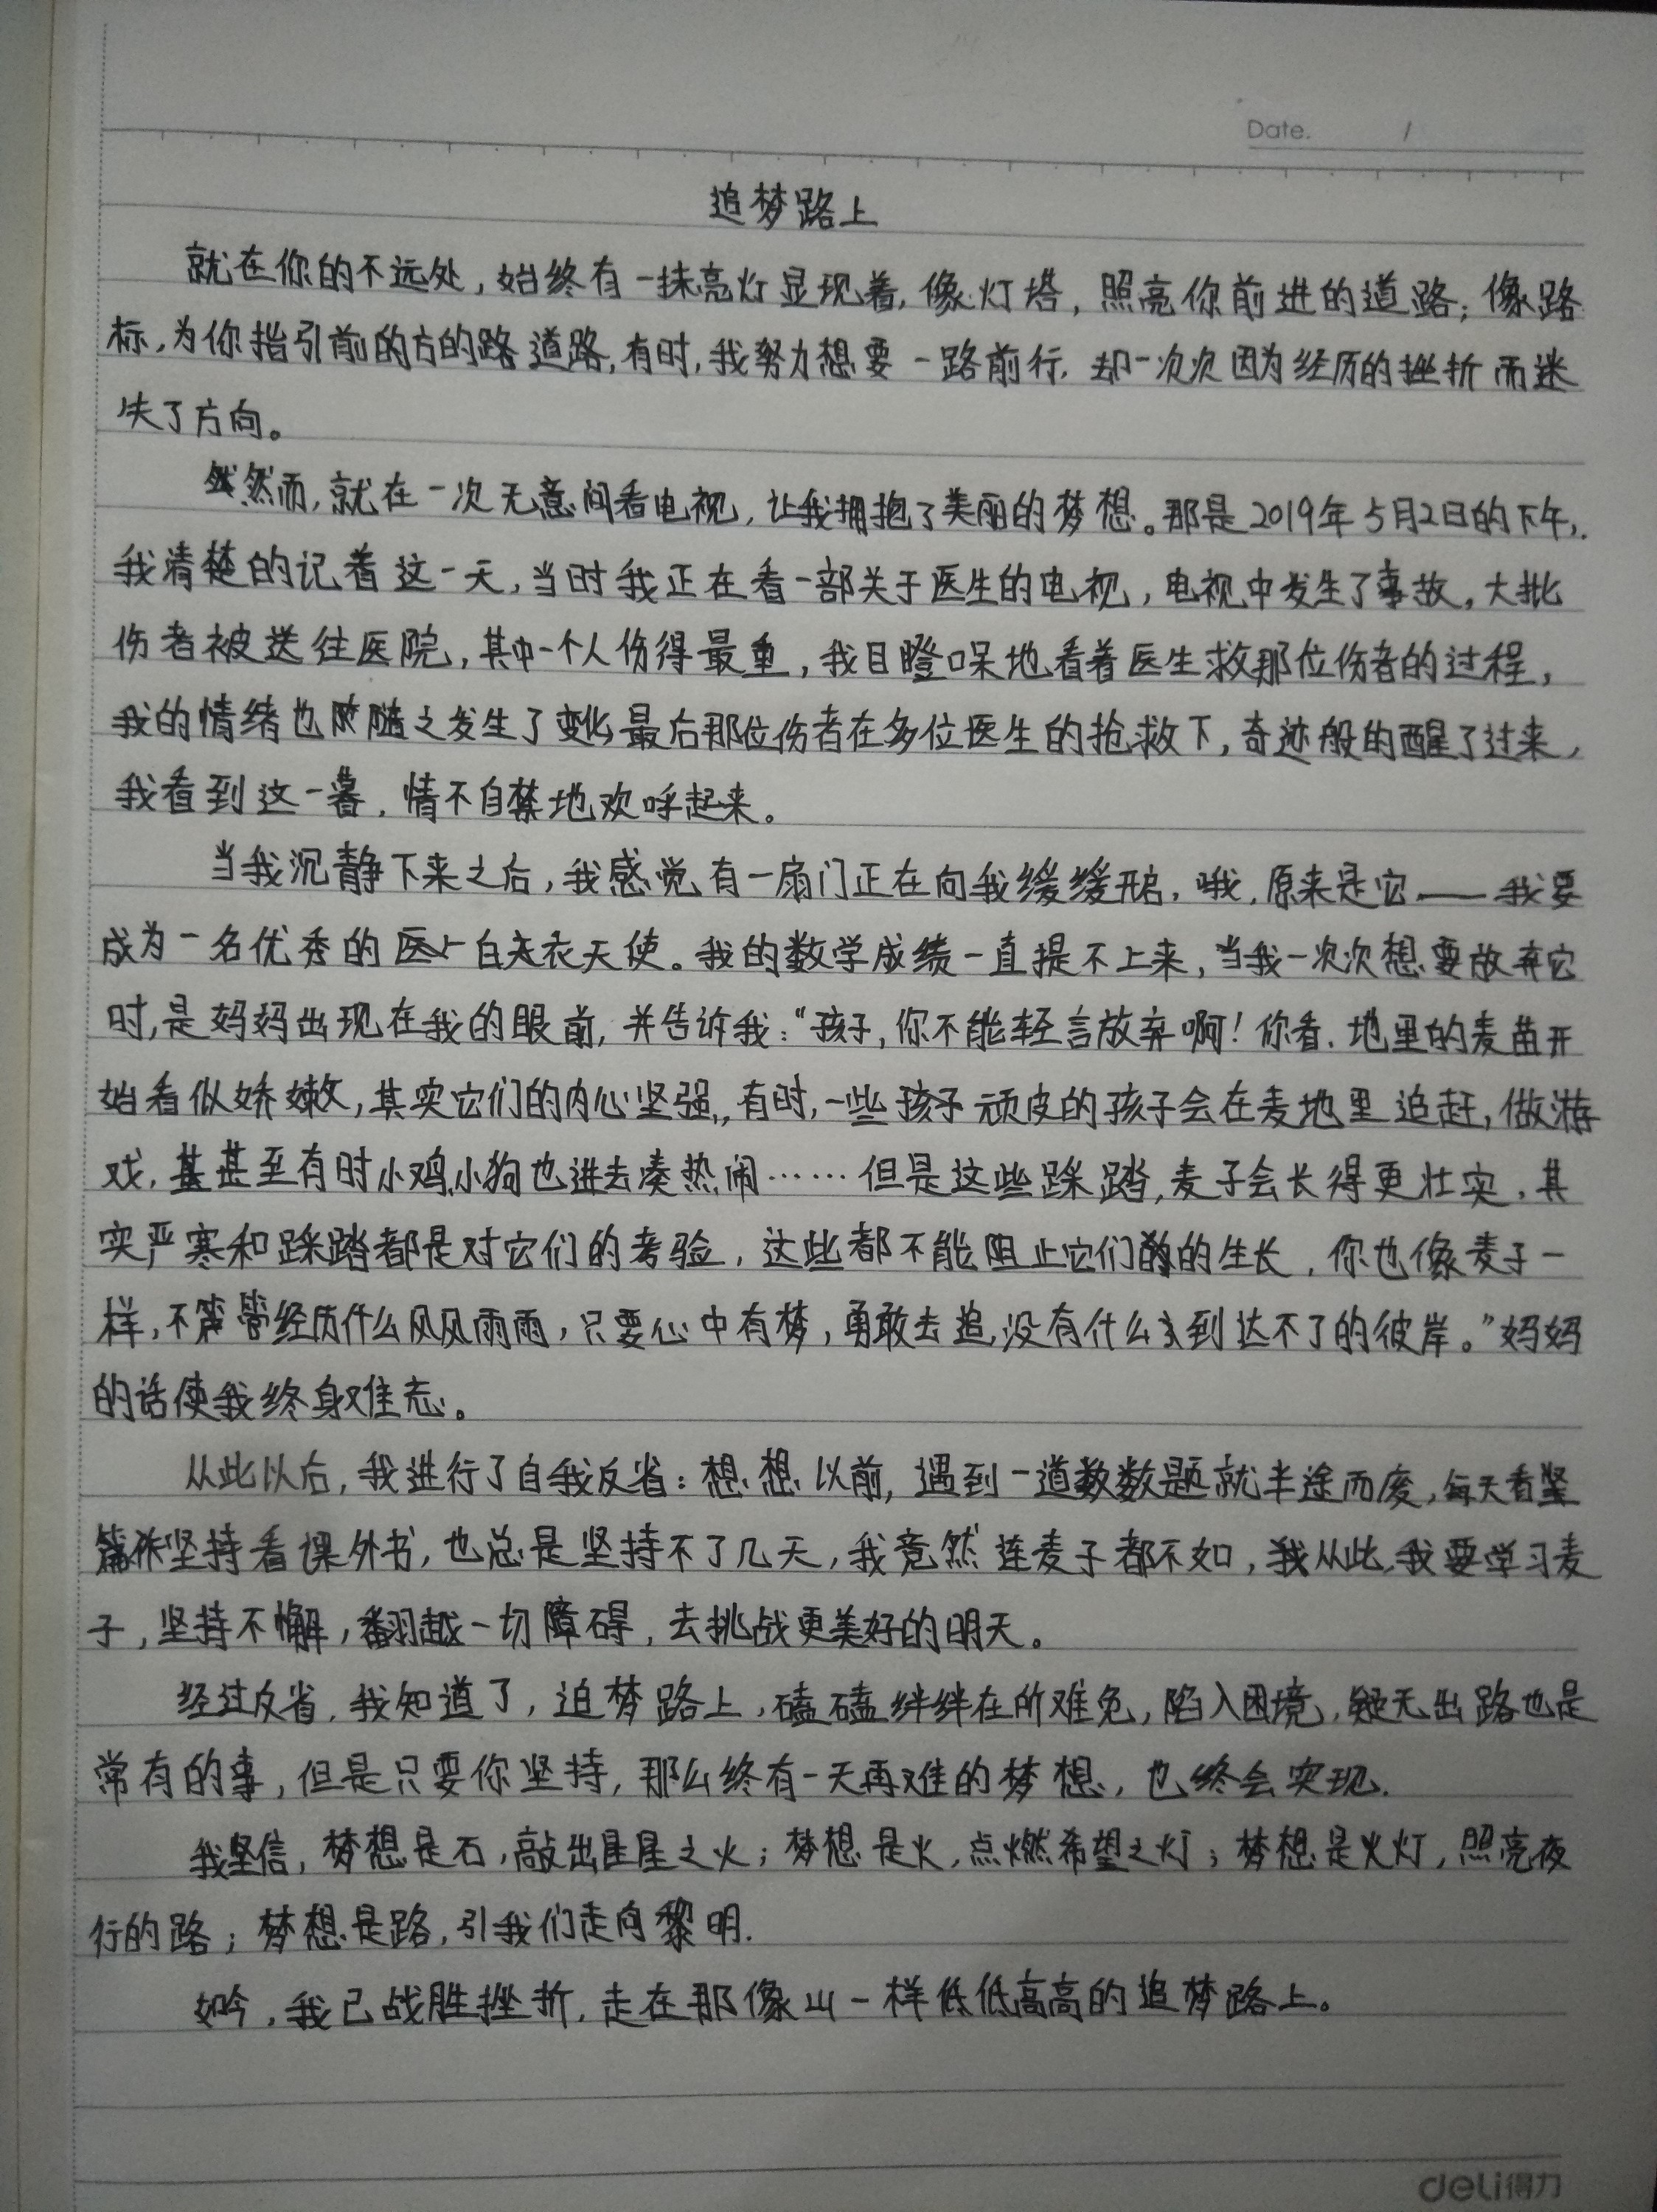 Date. /
追梦路上
就在你的不远处,始终有一抹亮灯显现着,像灯塔,照亮你前进的道路;像路
标,为你指引前的方的路道路,有时,我努力想要一路前行,却一次次因为经历的挫折而迷
失了方向。
然而,就在一次无意间看电视,让我拥抱了美丽的梦想。那是2019年5月2日的下午,
我清楚的记着这一天,当时我正在看一部关于医生的电视,电视中发生了事故,大批
伤者被送往医院,其中一个人伤得最重,我目瞪口呆地看着医生救那位伤者的过程,
我的情绪也随之发生了变化,最后那位伤者在多位医生的抢救下,奇迹般的醒了过来,
我看到这一幕,情不自禁地欢呼起来。
当我沉静下来之后,我感觉有一扇门正在向我缓缓开启,哦,原来是它——我要
成为一名优秀的白衣天使。我的数学成绩一直提不上来,当我一次次想要放弃它
时,是妈妈出现在我的眼前,并告诉我:“孩子,你不能轻言放弃啊!你看,地里的麦苗开
始看似娇嫩,其实它们的内心坚强,有时,一些孩子顽皮的孩子会在麦地里追赶,做游
戏,甚至有时小鸡小狗也进去凑热闹……但是这些踩踏,麦子会长得更壮实,其
实严寒和踩踏都是对它们的考验,这些都不能阻止它们的生长,你也像麦子一
样,不管经历什么风风雨雨,只要心中有梦,勇敢去追,没有什么到达不了的彼岸。”妈妈
的话使我终身难忘。
从此以后,我进行了自我反省:想想以前,遇到一道数题就半途而废,每天看
坚持看课外书,也总是坚持不了几天,我竟然连麦子都不如,我从此,我要学习麦
子,坚持不懈,翻越一切障碍,去挑战更美好的明天。
经过反省,我知道了,追梦路上,磕磕绊绊在所难免,陷入困境,疑无出路也是
常有的事,但是只要你坚持,那么终有一天再难的梦想,也终会实现.
我坚信,梦想是石,敲出星星之火;梦想是火,点燃希望之灯;梦想是火灯,照亮夜
行的路;梦想是路,引我们走向黎明.
如今,我已战胜挫折,走在那像山一样低低高高的追梦路上。
deli得力